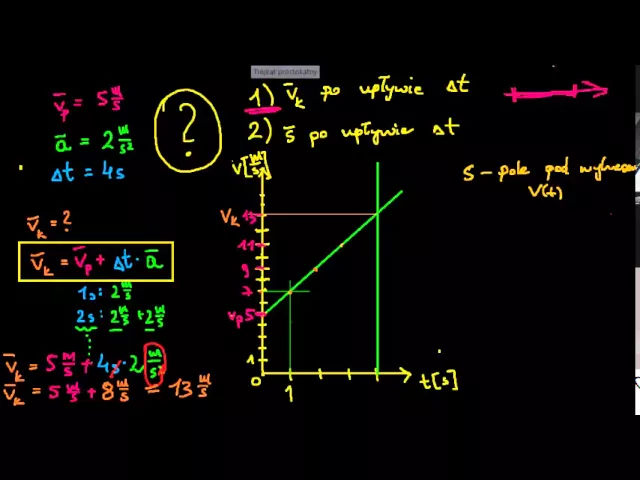 v̄p = 5 m/s
ā = 2 m/s²
Δt = 4s
?
1) v̄k po upływie Δt
2) s̄ po upływie Δt
s - pole pod wykresem
V(t)
v̄k = ?
v̄k = v̄p + Δt · ā
1s: 2 m/s
2s: 2 m/s + 2 m/s
v̄k = 5 m/s + 4s · 2 m/s²
v̄k = 5 m/s + 8 m/s = 13 m/s
V [m/s]
Vk 13
11
9
7
Vp 5
1
0
1
t[s]